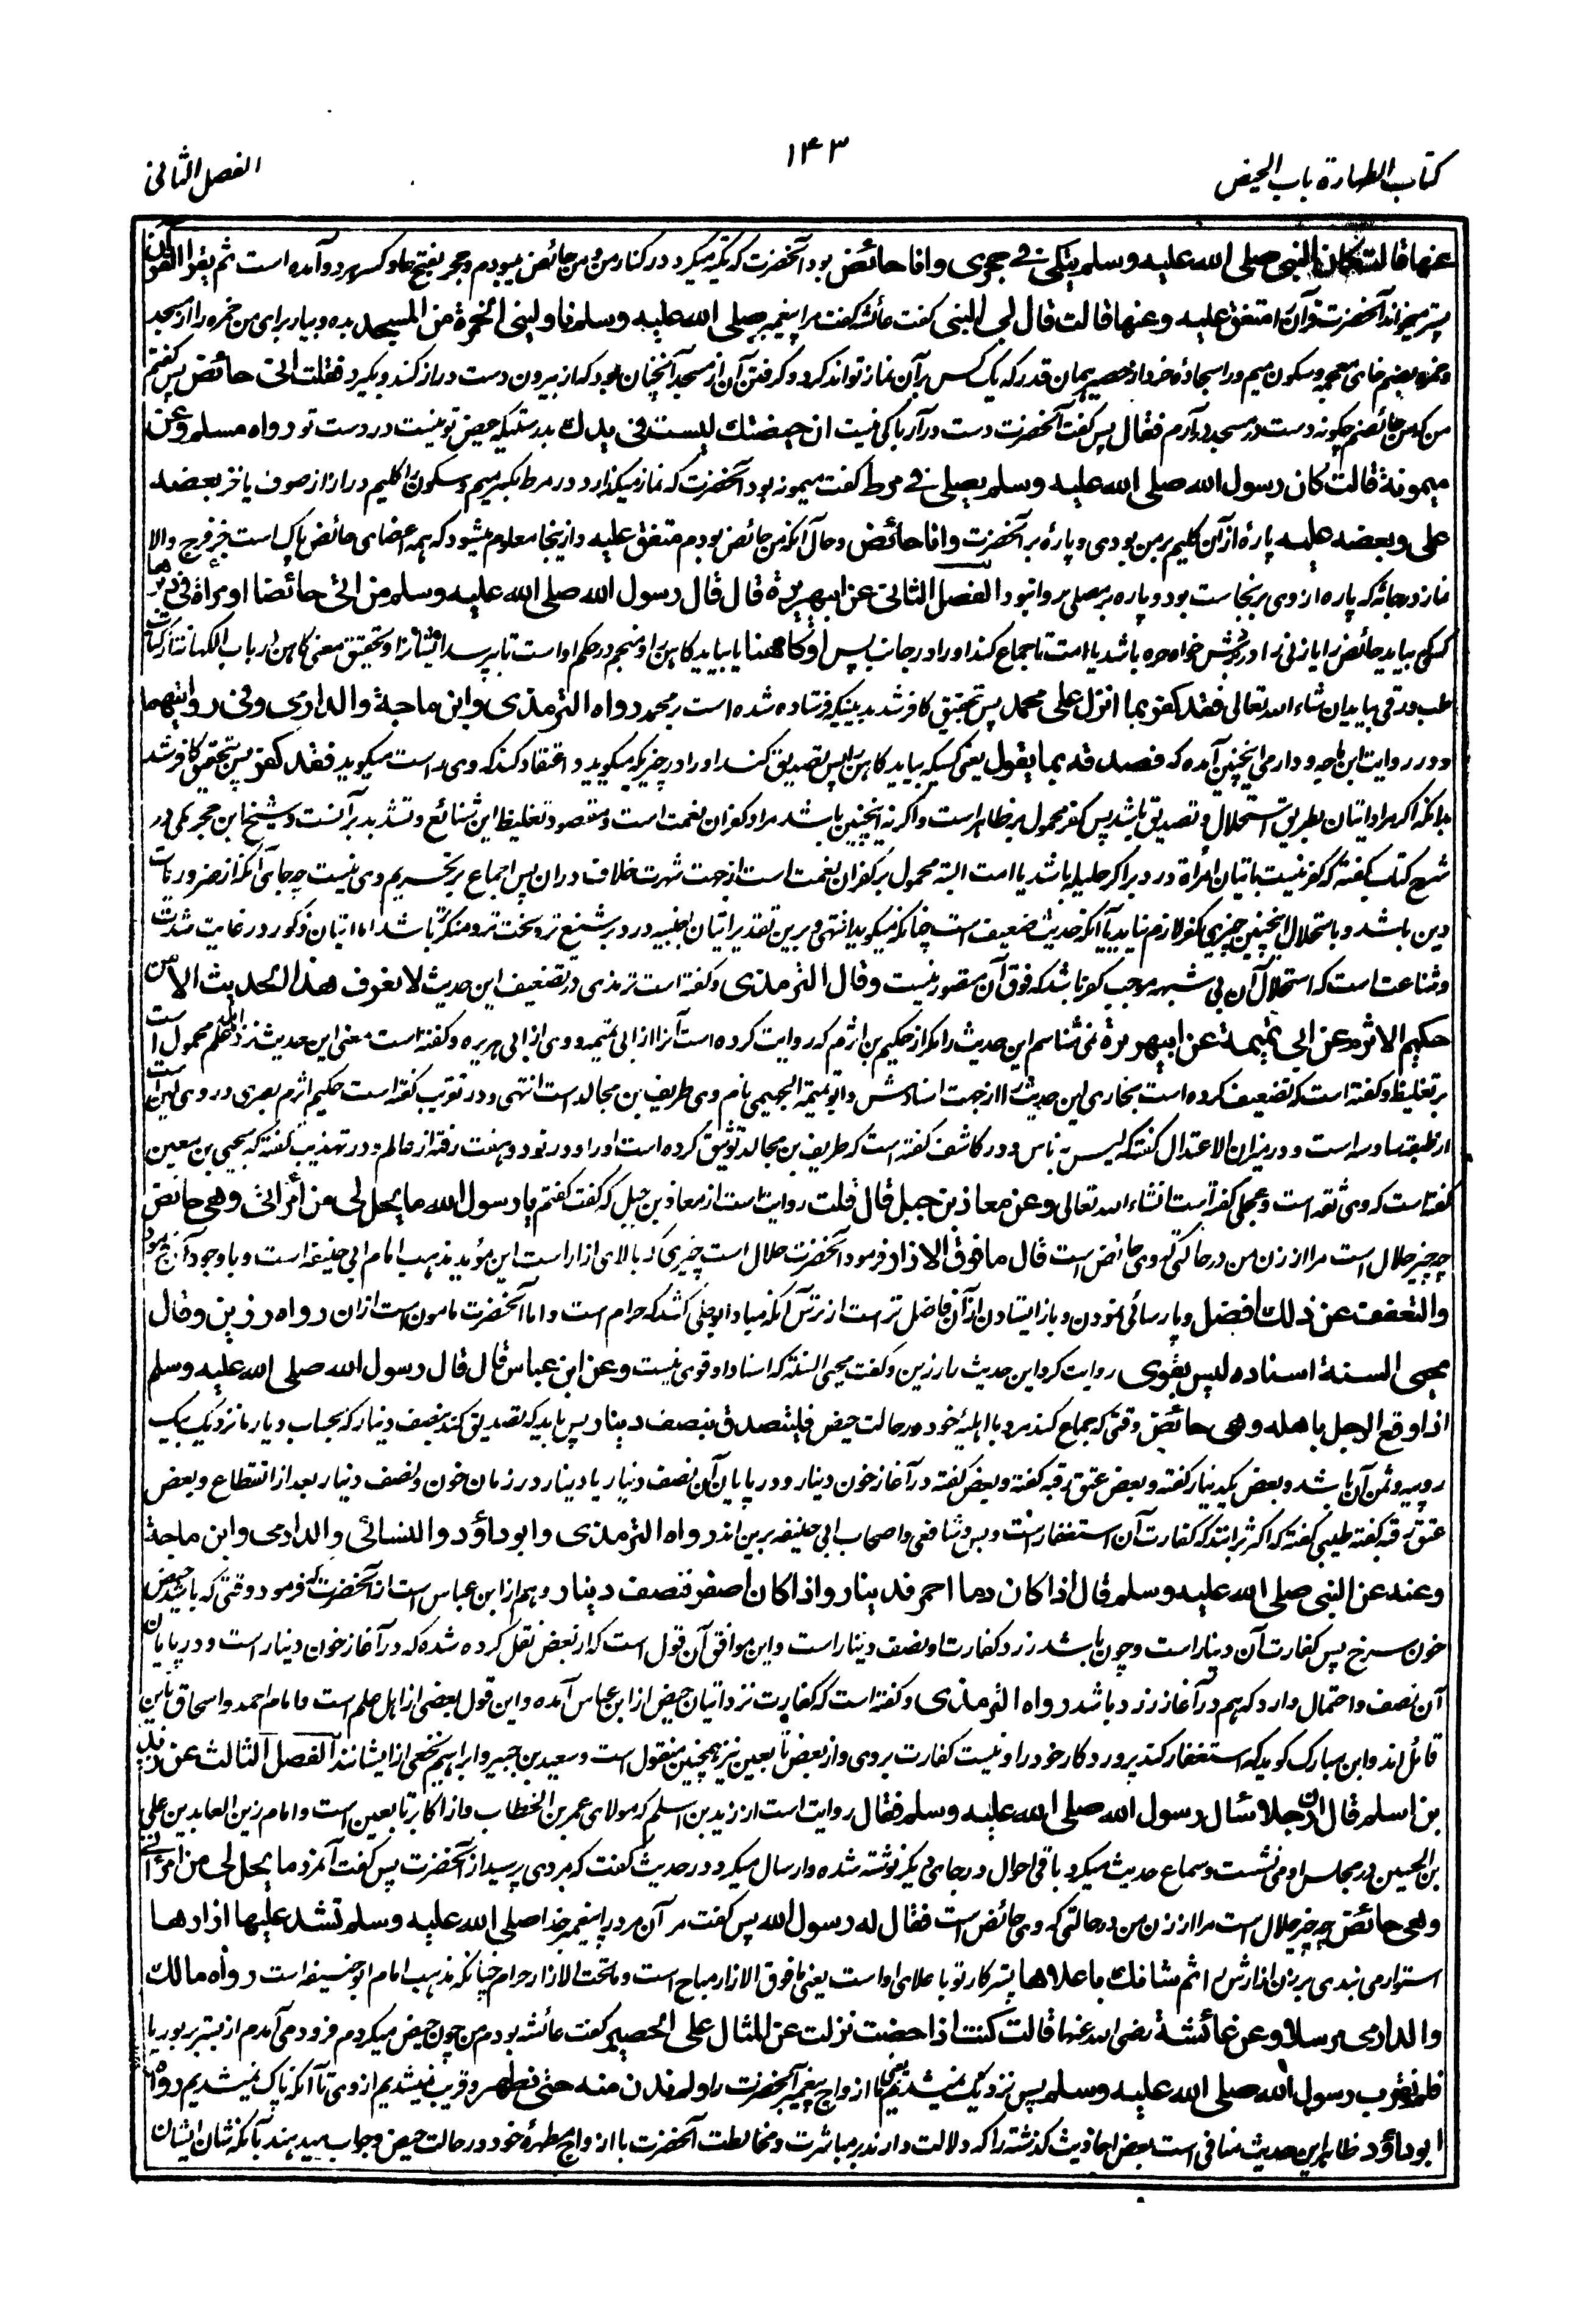 كتاب الطهارة باب الحيض
۱۴۳
الفصل الثانی
عنها قالت كان النبي صلى الله عليه وسلم يتكئ في حجري وانا حائض بود آنحضرت که تکیه میکرد در کنار من و من حائض میبودم و حجر بفتح حا و کسر هر دو آمده است ثم يقرأ القرآن
پستر میخواند آنحضرت قرآن را متفق عليه وعنها قالت قال لي النبي گفت عائشه گفت مرا پیغمبر صلى الله عليه وسلم ناوليني الخمرة من المسجد بده و بیار برای من خمره را از مسجد
وخمره بضم خای معجمه وسکون میم ورا سجاده خرد از حصیر بهمان قدر که یک کس بر آن نماز تواند کرد و گرفتن آن از مسجد آنچنان بود که از بیرون دست دراز کند و بگیرد فقلت اني حائض پس گفتم
من که من حائضم چگونه دست در مسجد در آرم فقال پس گفت آنحضرت دست در آر باکی نیست ان حيضتك ليست في يدك بدرستیکه حیض تو نیست در دست تو رواه مسلم وعن
ميمونة قالت كان رسول الله صلى الله عليه وسلم يصلي في مرط گفت میمونه بود آنحضرت که نماز میگذارد در مرط بکسر میم و سکون را گلیم دراز از صوف یا خز بعضه
علي وبعضه عليه پارهٔ از آن گلیم بر من بودی و پارهٔ بر آنحضرت وانا حائض وحال آنکه من حائض بودم متفق عليه و ازینجا معلوم میشود که همه اعضای حائض پاک است جز فرج والا
نماز در جامهٔ که پاره از وی بر نجاست بود و پاره بر مصلی روا نبود الفصل الثاني عن ابي هريرة قال قال رسول الله صلى الله عليه وسلم من اتى حائضا او امرأة في دبرها
کسی که بیاید حائض را یا زنی را در دبرش خواه حره باشد یا امت تا جماع کند او را در جانب پس او كاهنا یا بیاید کاهن را و منجم در حکم او است
طب و رقی بیاید ان شاء الله تعالی فقد كفر بما انزل على محمد پس بتحقیق کافر شد بدینکه فرستاده شده است بر محمد رواه الترمذي وابن ماجة والدارمي وفي روايتهما
و در روایت ابن ماجه و دارمی اینچنین آمده که فصدقه بما يقول یعنی کسیکه بیاید کاهن را پس تصدیق کند او را در چیزیکه میگوید و اعتقاد کند که وی راست میگوید فقد كفر پس بتحقیق کافر شد
بدانکه اگر مراد اتیان بطریق استحلال و تصدیق باشد پس کفر محمول بر ظاهر است و اگر نه اینچنین باشد مراد کفران نعمت است و مقصود تغلیظ این شنائع و تشدید بر آنست و شیخ ابن حجر مکی در
شرح کتاب گفته که کفر نیست باتیان امرأة در دبر اگر حلیله باشد یا امت البته محمول بر کفران نعمت است از جهت شهرت خلاف در ان پس اجماع بر تحریم وی نیست چه جای آنکه از ضروریات
دین باشد و باستحلال اینچنین چیزی کفر لازم نیاید با آنکه حدیث ضعیف است چنانکه میگوید انتهی و برین تقدیر اتیان اجنبیه در دبر شنیع تر و سخت تر و منکرتر باشد اما اتیان مذکور در غایت شدت
وشناعت است که استحلال آن بی شبهه موجب کفر باشد که فوق آن متصور نیست وقال الترمذي وگفته است ترمذی در تضعیف این حدیث لا نعرف هذا الحديث الا من
حكيم الاثرم عن ابي تميمة عن ابي هريرة نمی شناسم این حدیث را مگر از حکیم بن اثرم که روایت کرده است آنرا از ابی تمیمه و وی از ابی هریره و گفته است معنی این حدیث نزد اهل علم محمول است
بر تغلیظ و گفته است که تضعیف کرده است بخاری این حدیث را از جهت اسنادش و ابو تمیمة الهجیمی نام وی طریف بن مجالد است انتهی و در تقریب گفته است حکیم اثرم بصری در وی لین است
از طبقه سادسه است و در میزان الاعتدال گفته که لیس به باس و در کاشف گفته است که طریف بن مجالد توثیق کرده است او را و در نود و هفت رفته از عالم و در تهذیب گفته که یحیی بن معین
گفته است که وی ثقه است وعن معاذ بن جبل قال قلت روایت است از معاذ بن جبل که گفت گفتم يا رسول الله ما يحل لي من امرأتي وهي حائض
چه چیز حلال است مرا از زن من در حالتی که وی حائض است قال ما فوق الازار فرمود آنحضرت حلال است چیزی که بالای ازار است این مؤید مذهب امام ابی حنیفه است و با وجود آن فرمود
والتعفف عن ذلك افضل و پارسائی نمودن و باز ایستادن از آن فاضل تر است از ترس آنکه مبادا بوطی کشد که حرام است و اما آنحضرت مامون است از ان رواه رزين وقال
محيي السنة اسناده ليس بقوي روایت کرد این حدیث را رزین و گفت محیی السنة که اسناد او قوی نیست وعن ابن عباس قال قال رسول الله صلى الله عليه وسلم
اذا وقع الرجل باهله وهي حائض وقتی که جماع کند مرد با اهلیهٔ خود در حالت حیض فليتصدق بنصف دينار پس باید که تصدیق کند بنصف دینار که بحساب دیار ما نزدیک بیک
روپیه و ثمن آن باشد و بعض بیکدینار گفته و بعض عتق رقبه گفته و بعض گفته در آغاز خون دینار و در پایان آن نصف دینار یا دینار در زمان خون و نصف دینار بعد از انقطاع و بعض
عتق رقبه گفته طیبی گفته که اکثر برانند که کفارت آن استغفار است و بس و شافعی و اصحاب ابی حنیفه برین اند رواه الترمذي وابو داؤد والنسائي والدارمي وابن ماجة
وعنه عن النبي صلى الله عليه وسلم قال اذا كان دما احمر فدينار واذا كان اصفر فنصف دينار و هم از ابن عباس است از آنحضرت که فرمود وقتی که باشد حیض
خون سرخ پس کفارت آن دینار است و چون باشد زرد کفارت او نصف دینار است و این موافق آن قول است که از بعض نقل کرده شده که در آغاز خون دینار است و در پایان
آن نصف و احتمال دارد که هم در آغاز زرد باشد رواه الترمذي وگفته است که کفارت نزد اتیان حیض از ابن عباس آمده و این قول بعضی از اهل علم است و امام احمد و اسحاق باین
قائل اند و ابن مبارک گوید که استغفار کند پروردگار خود را و نیست کفارت بر وی و از بعض تابعین نیز همچنین منقول است و سعید بن جبیر و ابراهیم نخعی از ایشانند الفصل الثالث عن زيد
بن اسلم قال ان رجلا سأل رسول الله صلى الله عليه وسلم فقال روایت است از زید بن اسلم که مولای عمر بن الخطاب و از اکابر تابعین است و امام زین العابدین علی
بن الحسین در مجلس او می نشست و سماع حدیث میکرد باقی احوال در جای دیگر نوشته شده و ارسال میکرد در حدیث گفت که مردی پرسید از آنحضرت پس گفت آنمرد ما يحل لي من امرأتي
وهي حائض چه چیز حلال است مرا از زن من در حالتی که وی حائض است فقال له رسول الله پس گفت مر آن مرد را پیغمبر خدا صلى الله عليه وسلم تشد عليها ازارها
استوار می بندی بر زن ازارش را ثم شانك باعلاها پستر کار تو باعلای او است یعنی ما فوق الازار مباح است و ما تحت الازار حرام چنانکه مذهب امام ابو حنیفه است رواه مالك
والدارمي مرسلا وعن عائشة رضی الله عنها قالت كنت اذا حضت نزلت عن المثال على الحصير گفت عائشه بودم من چون حیض میکردم فرود می آمدم از بستر بر بوریا
فلم نقرب رسول الله صلى الله عليه وسلم پس نزدیک نمیشدیم یعنی ما ازواج پیغمبر آنحضرت را ولم ندن منه حتى نطهر و قریب نمیشدیم از وی تا آنکه پاک میشدیم رواه
ابو داؤد ظاهر این حدیث منافی است بعض احادیث گذشته را که دلالت دارند بر مباشرت و مخالطت آنحضرت با ازواج مطهرهٔ خود در حالت حیض و جواب میدهند بآنکه شان ایشان